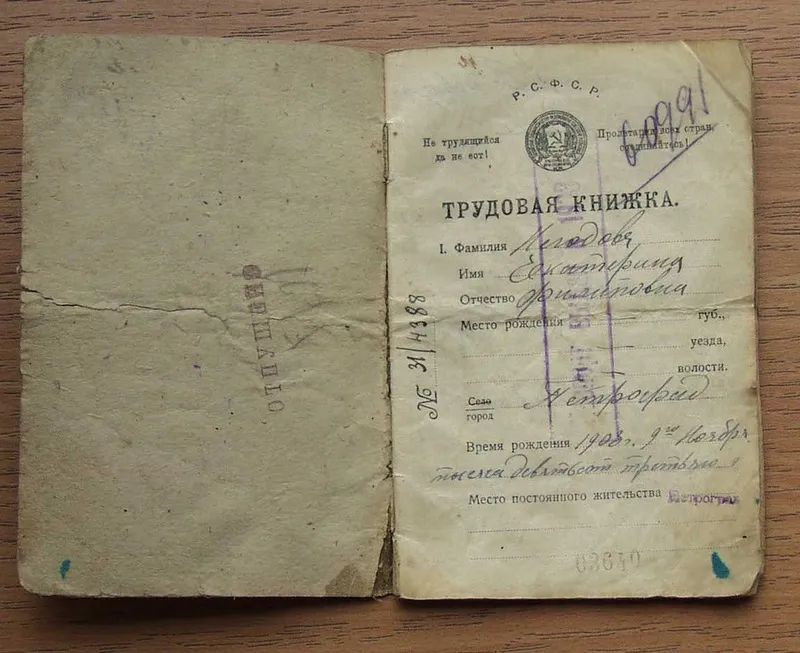 Р. С. Ф. С. Р.
60991
Не трудящийся
да не ест!
Пролетарии всех стран,
соединяйтесь!
ТРУДОВАЯ КНИЖКА.
1. Фамилия
Имя Екатерина
Отчество Филиповна
Место рождения губ.,
уезда,
волости.
Село
город Петроград
Время рождения 1903 г. 9го Ноября
тысяча девятьсот третьяго
Место постоянного жительства Петроград
03640
№ 31/4388